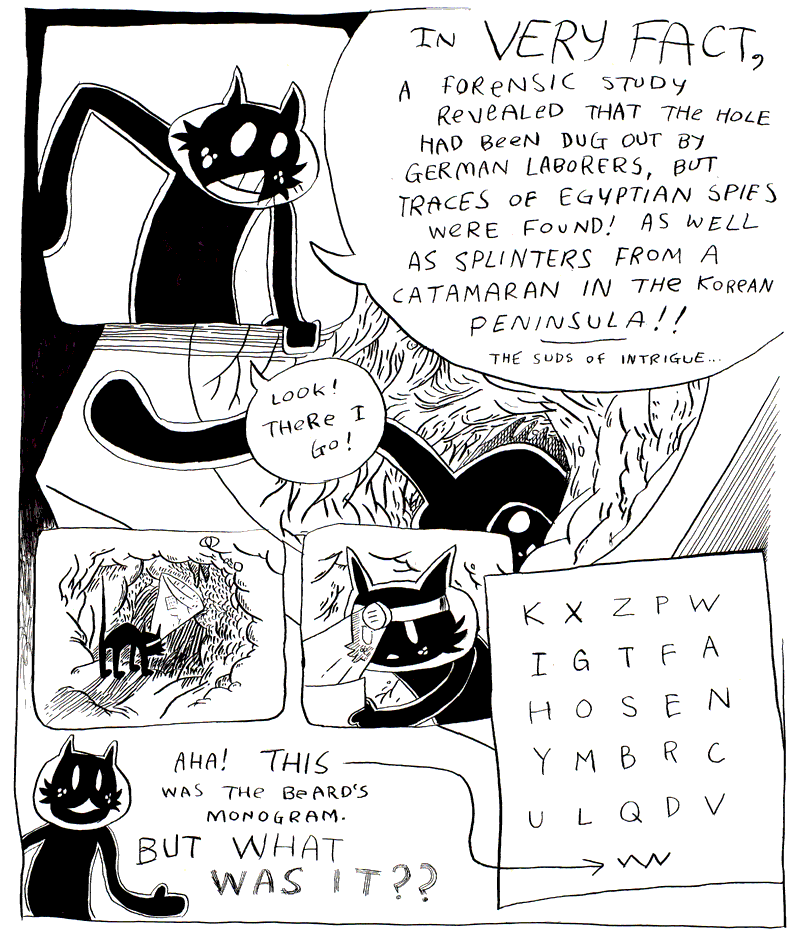 IN VERY FACT,
A FORENSIC STUDY
REVEALED THAT THE HOLE
HAD BEEN DUG OUT BY
GERMAN LABORERS, BUT
TRACES OF EGYPTIAN SPIES
WERE FOUND! AS WELL
AS SPLINTERS FROM A
CATAMARAN IN THE KOREAN
PENINSULA!!
THE SUDS OF INTRIGUE...
LOOK!
THERE I
GO!
K X Z P W
I G T F A
H O S E N
Y M B R C
U L Q D V
AHA! THIS
WAS THE BEARD'S
MONOGRAM.
BUT WHAT
WAS IT??